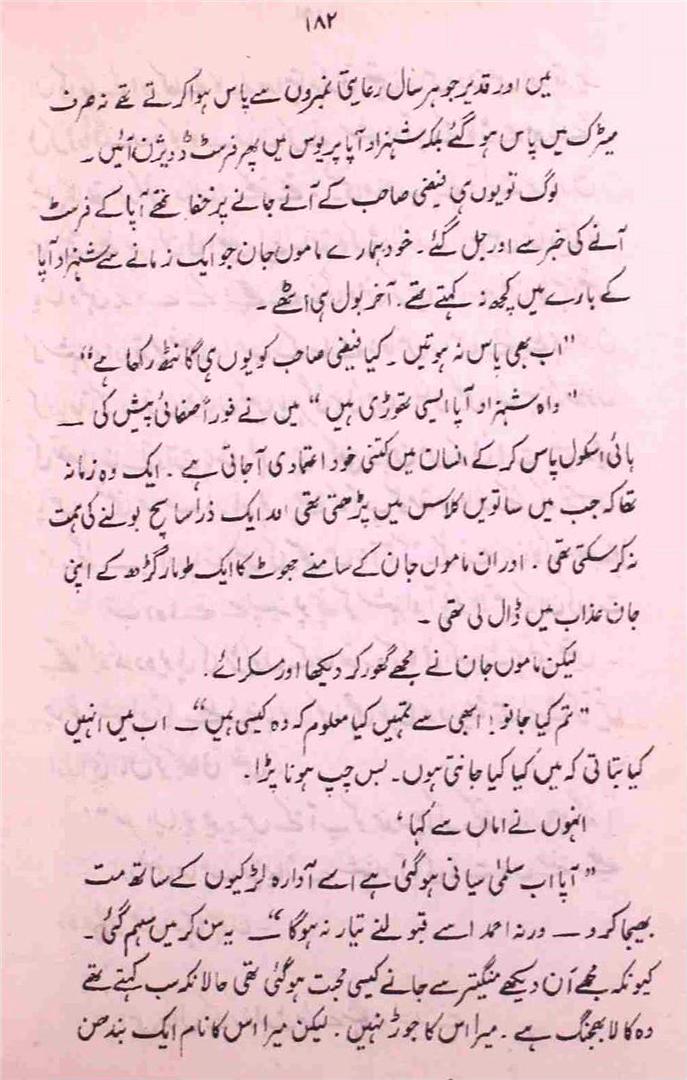 ۱۸۲
میں اور قدیر جو ہر سال رعایتی نمبروں سے پاس ہوا کرتے تھے نہ صرف
میٹرک میں پاس ہو گئے بلکہ شہزاد آپا پریوس میں پھر فرسٹ ڈویژن آئیں ۔
لوگ تو یوں ہی فیضی صاحب کے آنے جانے پر خفا تھے آپا کے فرسٹ
آنے کی خبر سے اور جل گئے ۔ خود ہمارے ماموں جان جو ایک زمانے سے شہزاد آپا
کے بارے میں کچھ نہ کہتے تھے ۔ آخر بول ہی اٹھے ۔
"اب بھی پاس نہ ہوتیں ۔ کیا فیضی صاحب کو یوں ہی گانٹھ رکھا ہے"
"واہ شہزاد آپا ایسی تھوڑی ہیں" میں نے فوراً صفائی پیش کی —
ہائی اسکول پاس کر کے انسان میں کتنی خود اعتمادی آ جاتی ہے ۔ ایک وہ زمانہ
تھا کہ جب میں ساتویں کلاس میں پڑھتی تھی اور ایک ذرا سا سچ بولنے کی ہمت
نہ کر سکتی تھی ۔ اور ان ماموں جان کے سامنے جھوٹ کا ایک طومار گڑھ کے اپنی
جان عذاب میں ڈال لی تھی ۔
لیکن ماموں جان نے مجھے گھور کر دیکھا اور مسکرائے ۔
"تم کیا جانو! ابھی سے تمہیں کیا معلوم کہ وہ کیسی ہیں" — اب میں انہیں
کیا بتاتی کہ میں کیا کیا جانتی ہوں ۔ بس چپ ہونا پڑا ۔
انہوں نے اماں سے کہا ،
"آپا اب سلمٰی سیانی ہو گئی ہے اسے آوارہ لڑکیوں کے ساتھ مت
بھیجا کرو — ورنہ احمد اسے قبولنے تیار نہ ہو گا" — یہ سن کر میں سہم گئی ۔
کیونکہ مجھے اَن دیکھے منگیتر سے جانے کیسی محبت ہو گئی تھی حالانکہ سب کہتے تھے
وہ کالا بھجنگ ہے ۔ میرا اس کا جوڑ نہیں ۔ لیکن میرا اس کا نام ایک بندھن